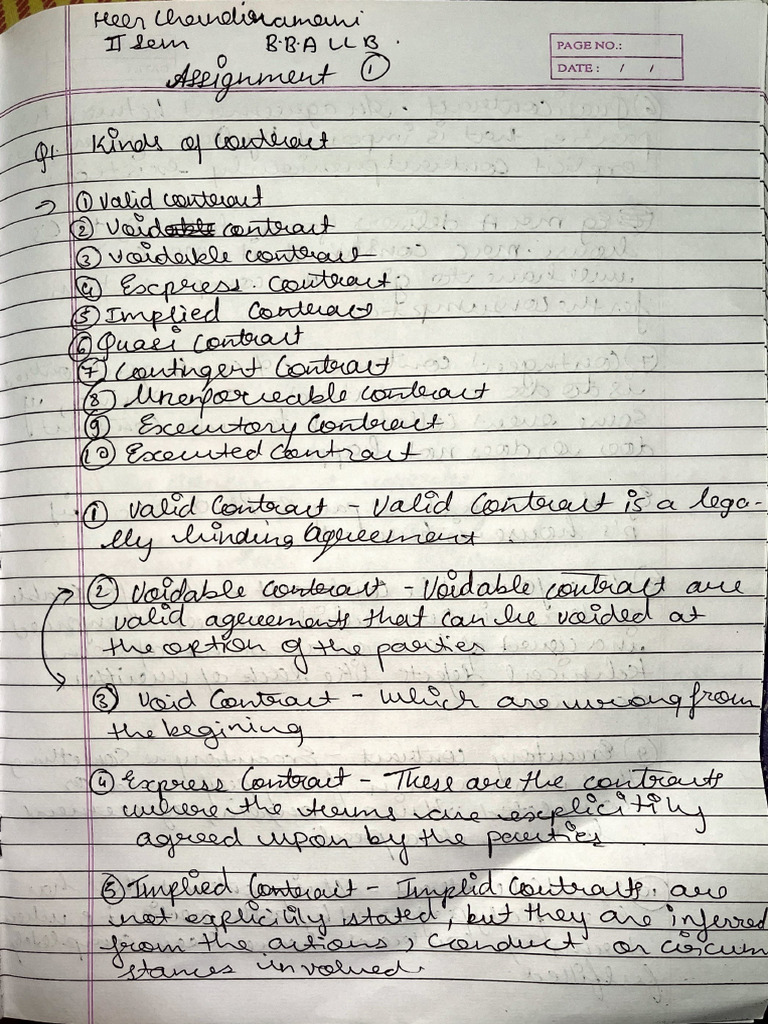 Heer Chandiramani
II Sem B.B.A LL B.
PAGE NO.:
DATE: / /
Assignment ①
Q1. Kinds of contract
→ ① Valid contract
② Void contract
③ voidable contract
④ Express contract
⑤ Implied contract
⑥ Quasi contract
⑦ Contingent Contract
⑧ Unenforceable contract
⑨ Executory Contract
⑩ Executed contract
① Valid Contract - Valid Contract is a lega-
lly binding agreement.
② Voidable contract - Voidable contract are
valid agreements that can be voided at
the option of the parties
③ Void Contract - which are wrong from
the begining
④ Express Contract - These are the contracts
where the terms are explicitily
agreed upon by the parties
⑤ Implied Contract - Implid Contracts are
not explicitly stated, but they are inferred
from the actions, conduct or circum
stances involved.